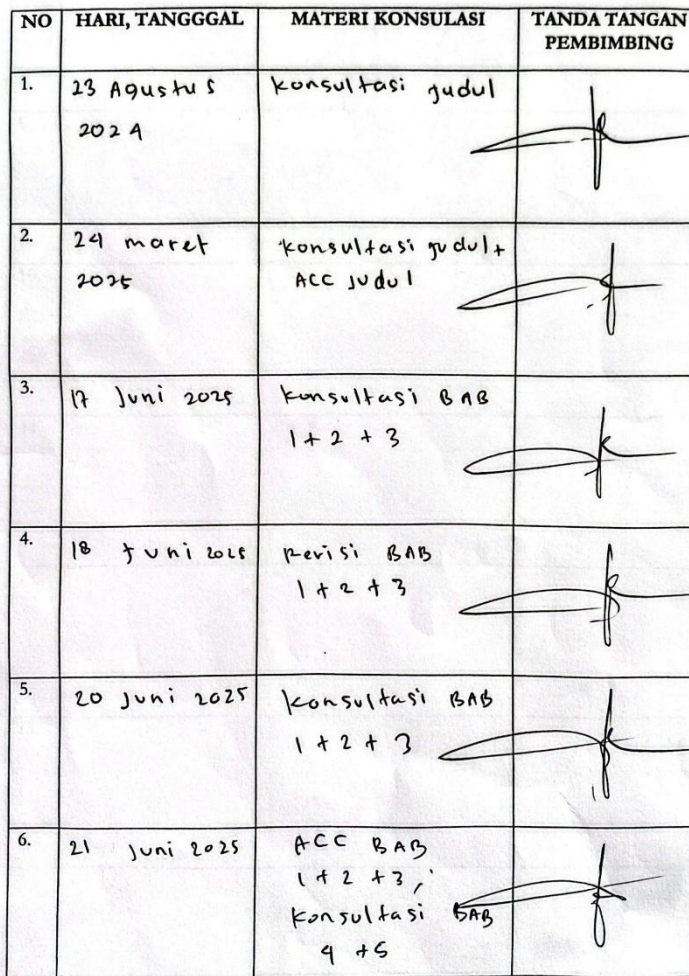 NO HARI, TANGGGAL MATERI KONSULASI TANDA TANGAN
PEMBIMBING
1. 23 Agustus konsultasi judul
2024
2. 24 maret konsultasi judul +
2025 ACC judul
3. 17 Juni 2025 konsultasi BAB
1 + 2 + 3
4. 18 Juni 2025 Revisi BAB
1 + 2 + 3
5. 20 Juni 2025 konsultasi BAB
1 + 2 + 3
6. 21 Juni 2025 ACC BAB
1 + 2 + 3 ;
konsultasi BAB
4 + 5